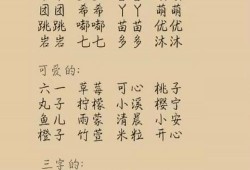 团团 希希 丫丫 萌萌
跳跳 嘟嘟 苗苗 优优
岩岩 七七 多多 沐沐
可爱的:
六一 草莓 可心 桃子
丸子 柠檬 小溪 樱宁
鱼儿 雨蒙 清晨 小安
橙子 竹萱 米粒 开心
三字的: